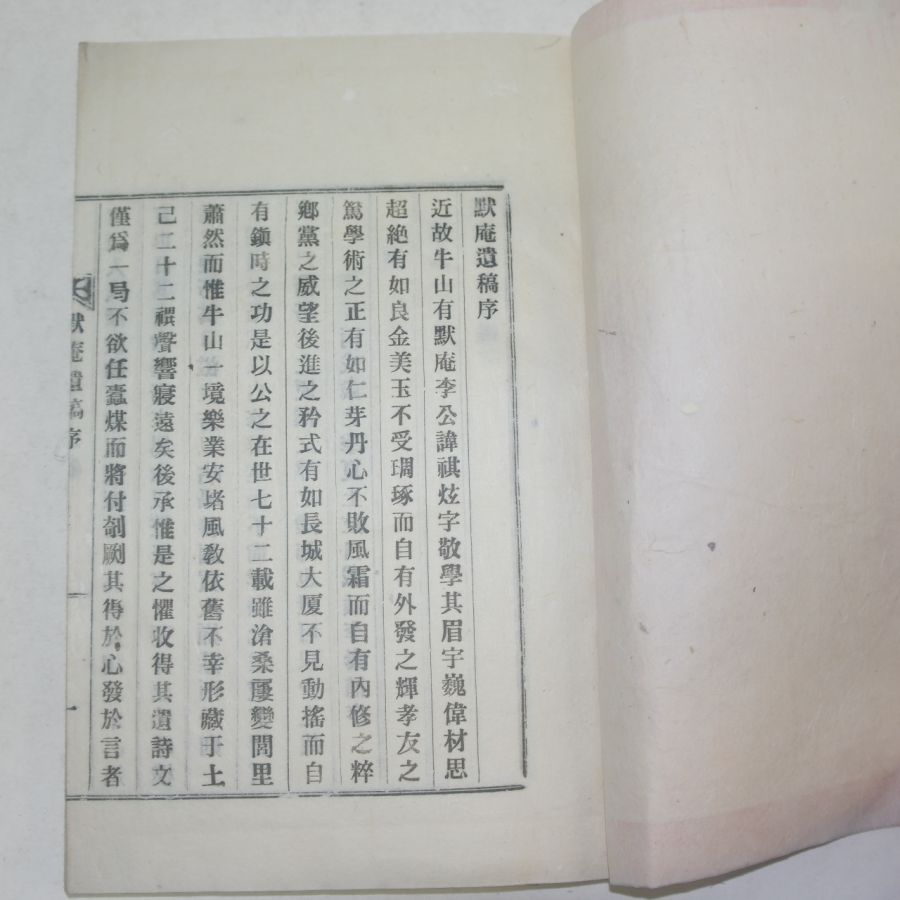 默庵遺稿序
近故牛山有默庵李公諱祺炫字敬學其眉宇巍偉材思
超絶有如良金美玉不受琱琢而自有外發之輝孝友之
篤學術之正有如仁芽丹心不敗風霜而自有內修之粹
鄉黨之威望後進之矜式有如長城大厦不見動搖而自
有鎭時之功是以公之在世七十二載雖滄桑屢變閭里
蕭然而惟牛山一境樂業安堵風敎依舊不幸形藏于土
己二十二禩聲響寢遠矣後承惟是之懼收得其遺詩文
僅爲一局不欲任蠧煤而將付剞劂其得於心發於言者
默庵遺稿序
一